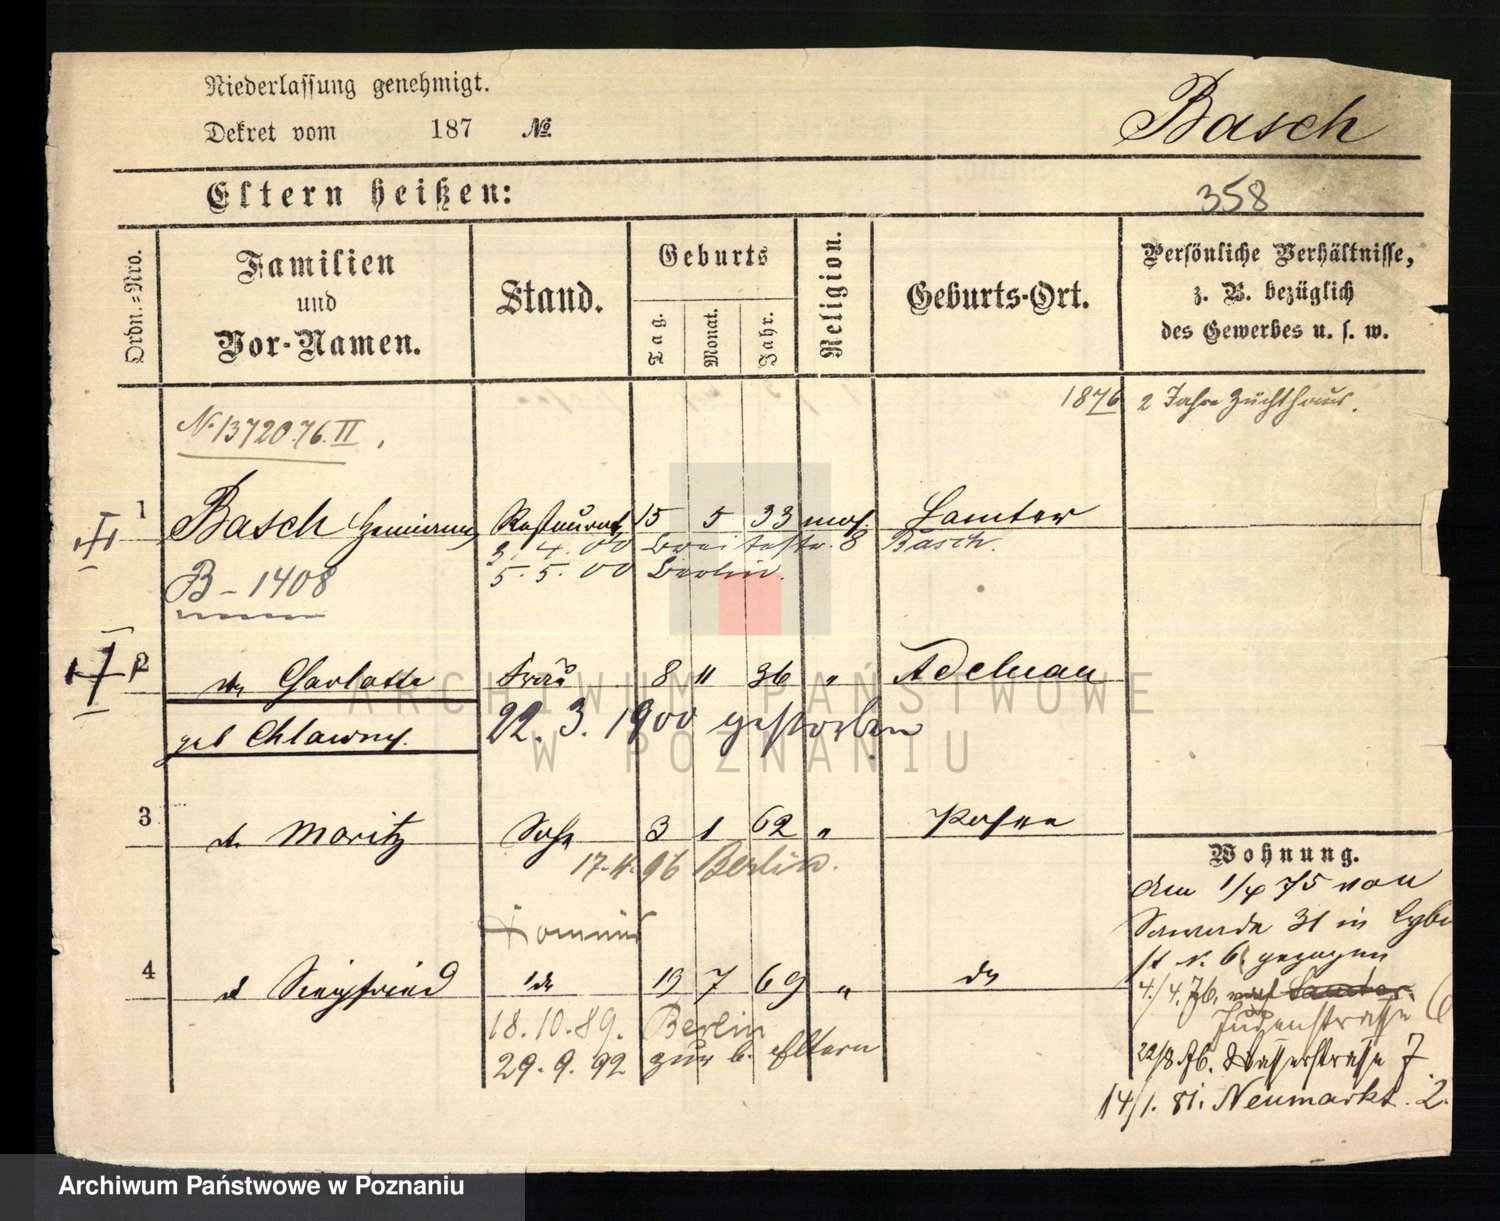 Niederlassung genehmigt.
Dekret vom 187 №
Basch
Eltern heißen:
358
Ordn.=Nro.
Familien
und
Vor-Namen.
Stand.
Geburts
Tag.
Monat.
Jahr.
Religion.
Geburts-Ort.
Persönliche Verhältnisse,
z. B. bezüglich
des Gewerbes u. s. w.
1876 2 Jahre Zuchthaus.
№ 13720.76. II
1 Basch Hermann Restaurat 15 5 33 mos. Samter
3. 4. 00 Breitestr. 8 Basch.
5. 5. 00 Berlin.
B - 1408
2 Charlotte Frau 8 " 36 " Adelnau
geb
22. 3. 1900 gestorben
3 Moritz Sohn 3 1 62 " Posen
17. 4. 96 Berlin.
4 Siegfried 19 7 69 "
18. 10. 89. Berlin
29. 9. 92 zur b. Eltern
Wohnung.
Am 1/4 75 von
31 in
gezogen
4/4. 76. nach Samter.
Judenstrasse 6
22/8. 76. Wasserstrasse 7.
14/1. 81. Neumarkt. 2.
ARCHIWUM PAŃSTWOWE
W POZNANIU
Archiwum Państwowe w Poznaniu